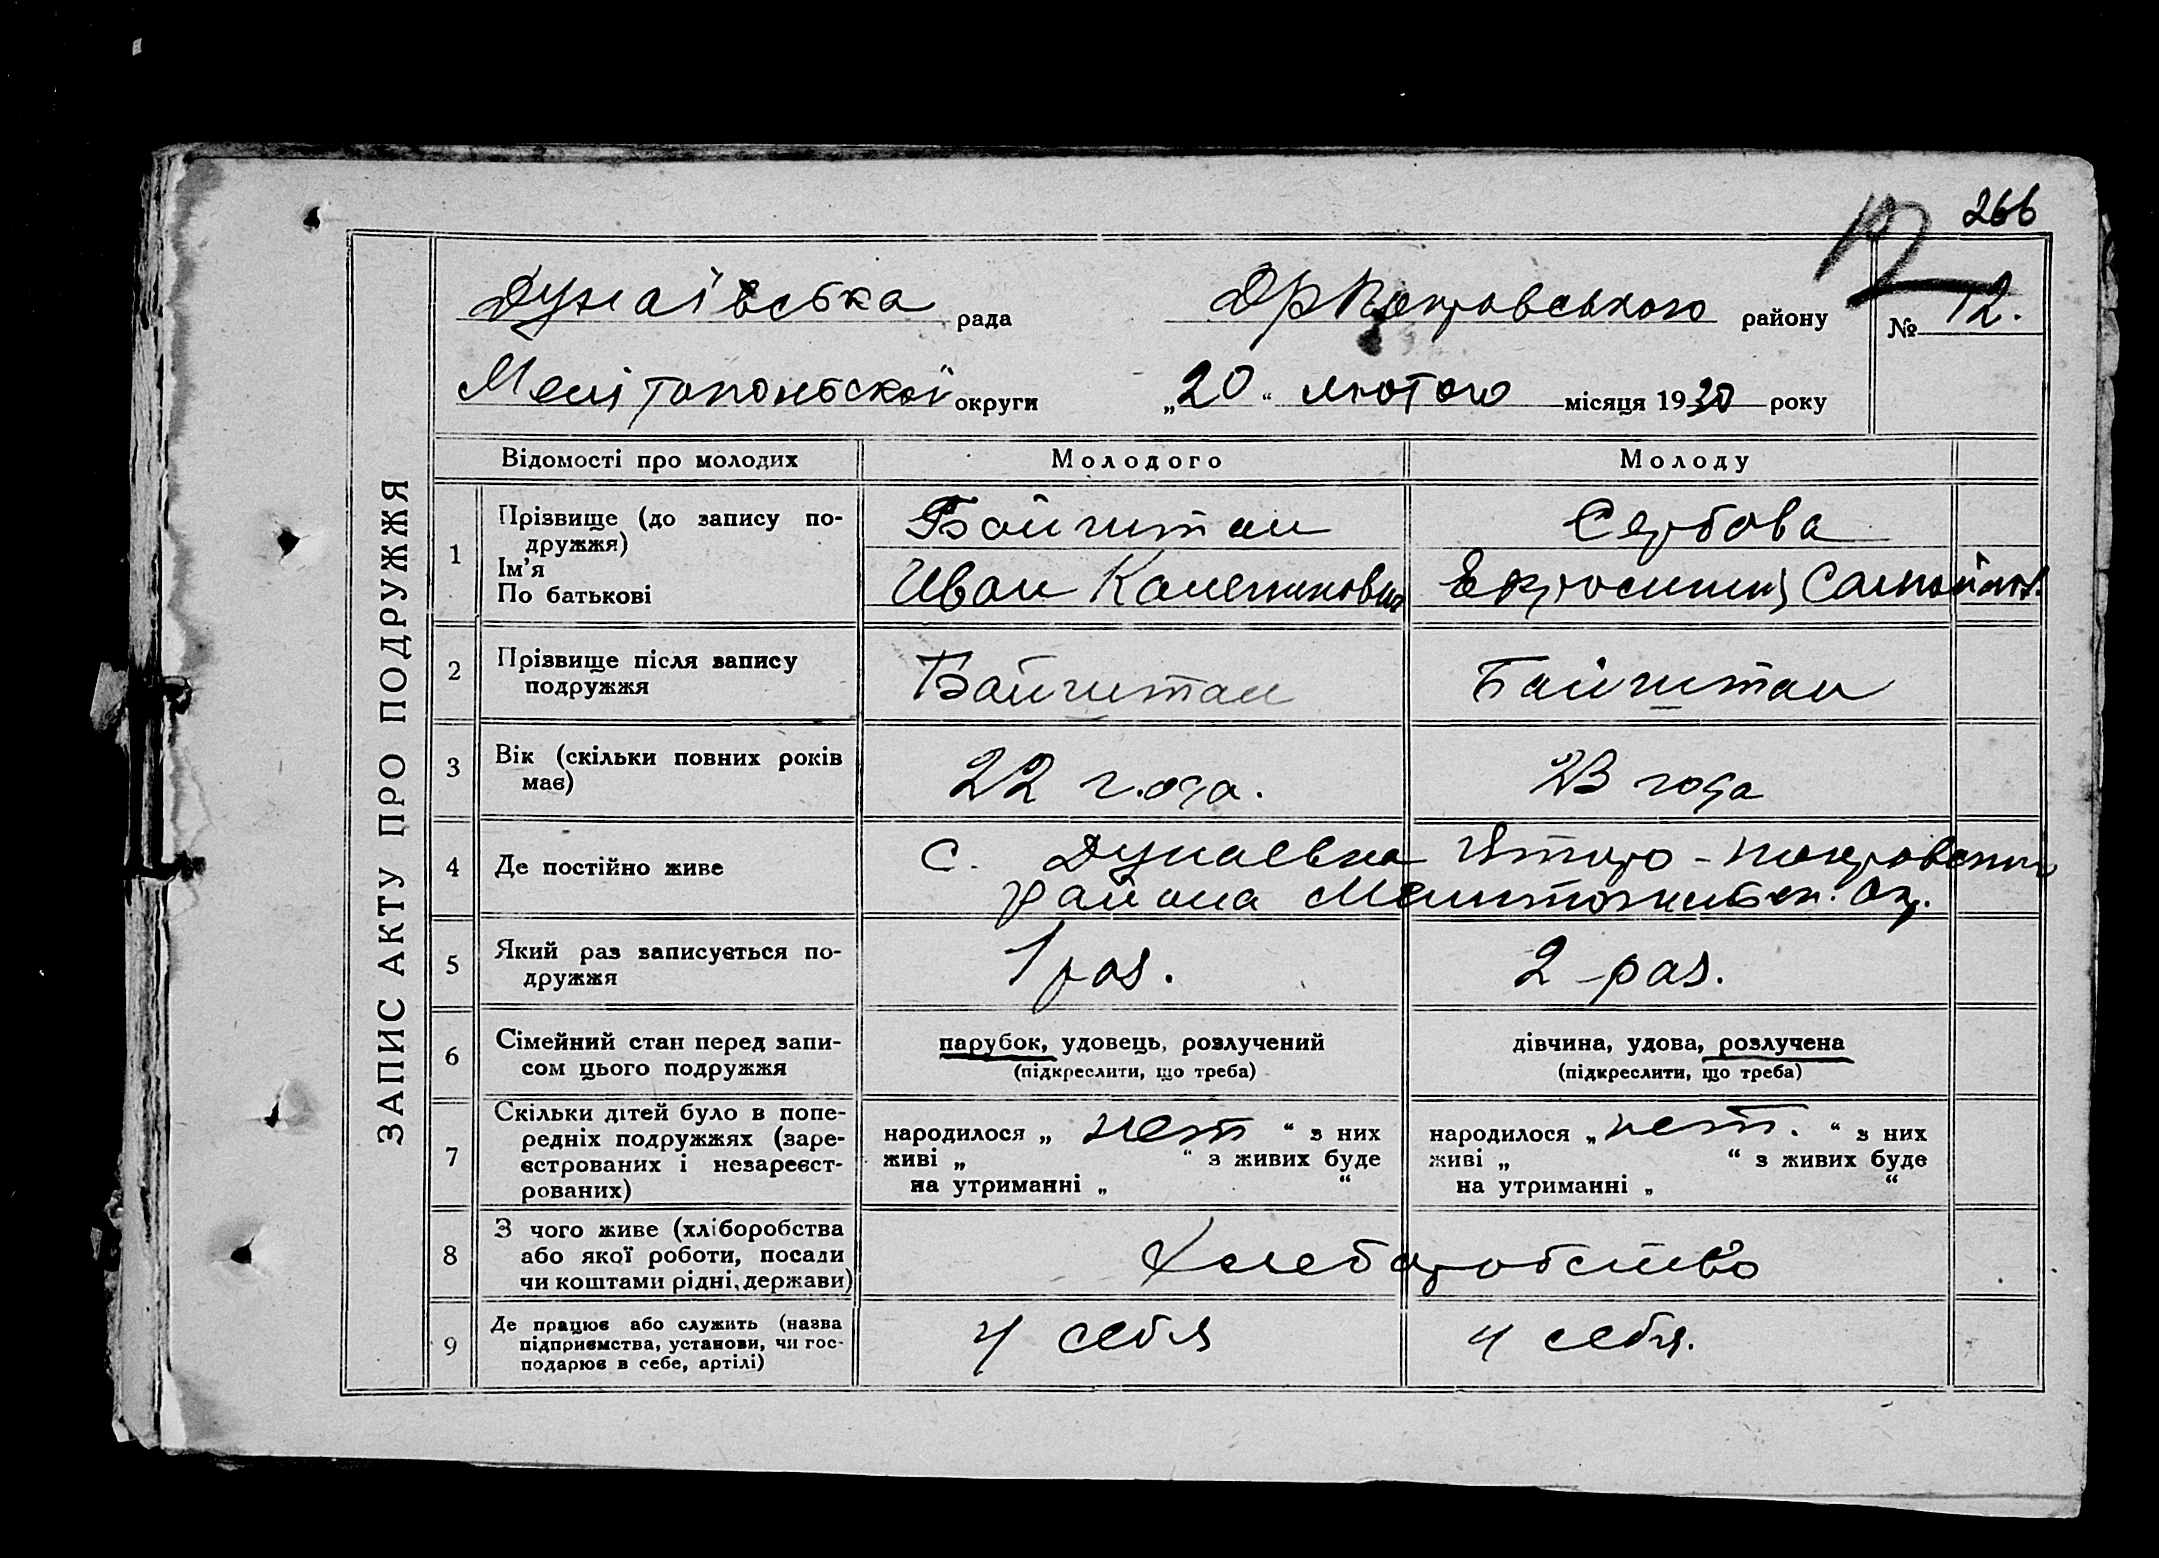 266
12
Дунаївська рада ДрПокровського району № 12.
Мелітопольської округи „20“ лютого місяця 1930 року
ЗАПИС АКТУ ПРО ПОДРУЖЖЯ
Відомості про молодих Молодого Молоду
1 Прізвище (до запису по-
дружжя)
Ім'я
По батькові
Байчитан Сербова
Иван Каленикович
2 Прізвище після запису
подружжя
Байчитан Байчитан
3 Вік (скільки повних років
має)
22 года. 23 года
4 Де постійно живе
с. Дунаевка -Покровского
района Мелитопольск. Окр.
5 Який раз записується по-
дружжя
1 раз. 2 раз.
6 Сімейний стан перед запи-
сом цього подружжя
парубок, удовець, розлучений дівчина, удова, розлучена
(підкреслити, що треба) (підкреслити, що треба)
7 Скільки дітей було в попе-
редніх подружжях (заре-
єстрованих і незареєст-
рованих)
народилося „ нет “ з них народилося „ нет. “ з них
живі „ “ з живих буде живі „ “ з живих буде
на утриманні „ “ на утриманні „ “
8 З чого живе (хліборобства
або якої роботи, посади
чи коштами рідні, держави)
Хлеборобство
9 Де працює або служить (назва
підприємства, установи, чи гос-
подарює в себе, артілі)
у себя у себя.